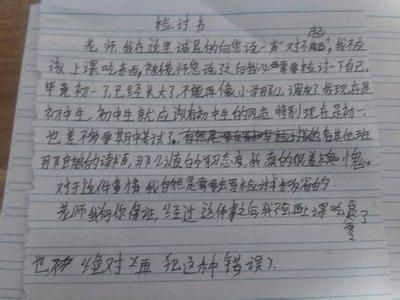 检讨书
老师,我在这里诚恳的向您说一声"对不起",我不应
该上课吃东西,被佬师您说这句我必需要检讨一下自己。
毕竟初一了,已经长大了,不能再像小学那么调皮了我现在是
初中生,初中生就应该有初中生的风范,特别现在是初一,
也差不多要期中考试了。看其他班
那的读书声,那么的学习态度,我真的很羞愧。
对于这件事情,我自然是需要写检讨的。
老师我向你保证,经过这件事之后我不会再上课吃东西了
也 绝对不再犯这种错误了。